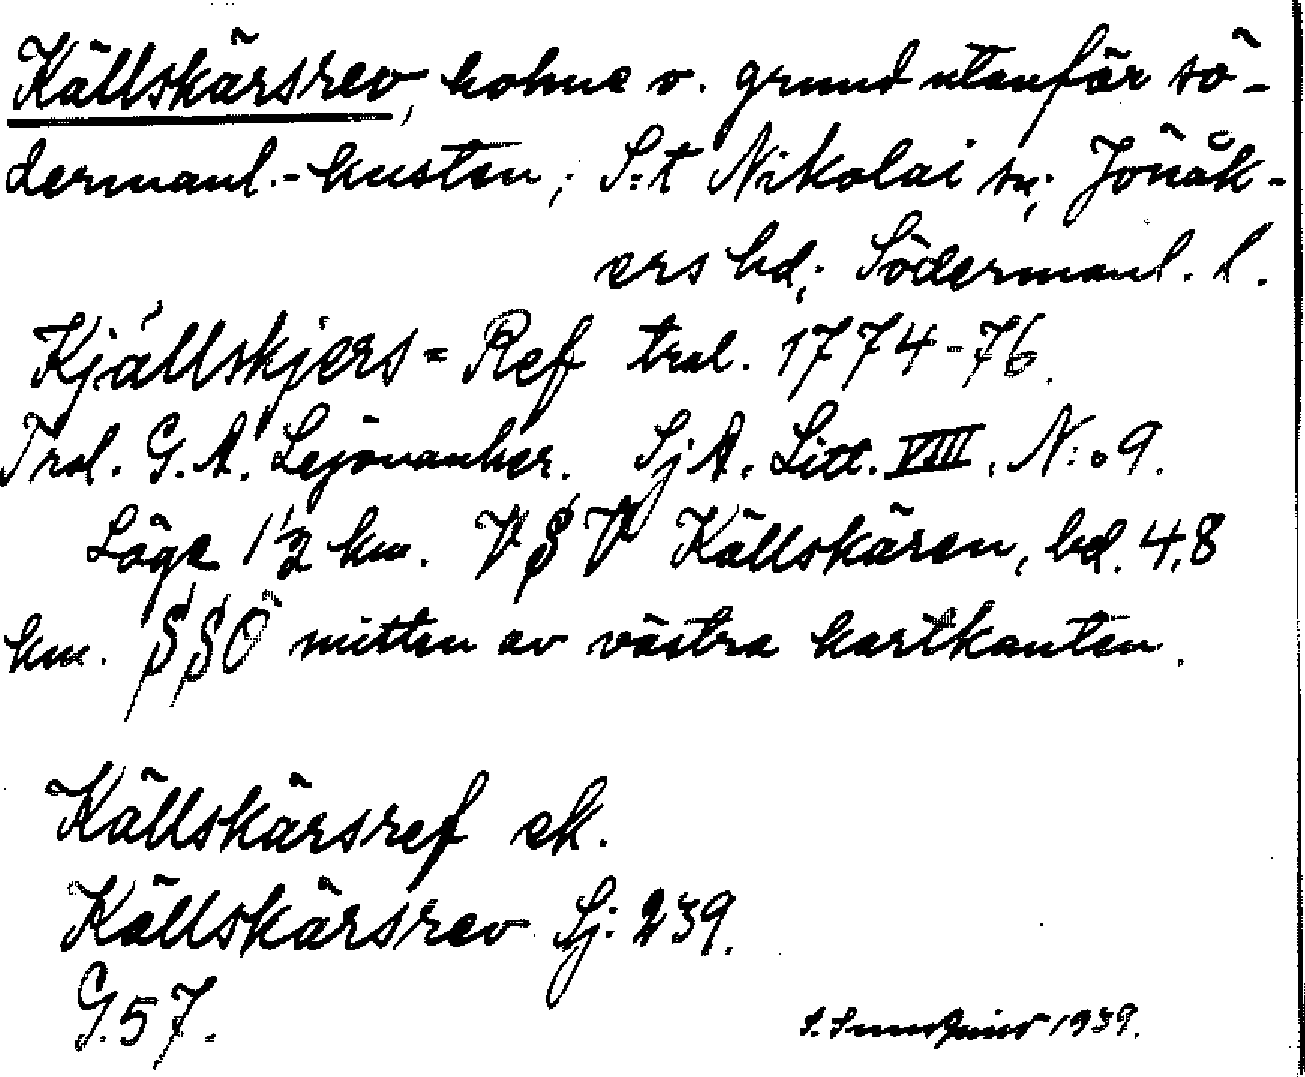 Källskärsrev, holme o. grund utanför sö-
dermanl.-kusten; S:t Nikolai sn; Jönåk-
ers hd; Södermanl. l.
Kjällskjers=Ref trol. 1774-76.
Trol. G. A. Lejonanker. SjA. Litt. VIII. N:o 9.
Läge 1½ km. VSV Källskären, bd. 4,8
km. SSÖ mitten av västra kartkanten.
Källskärsref ek.
Källskärsrev Sj: 239.
G. 57.
1939.